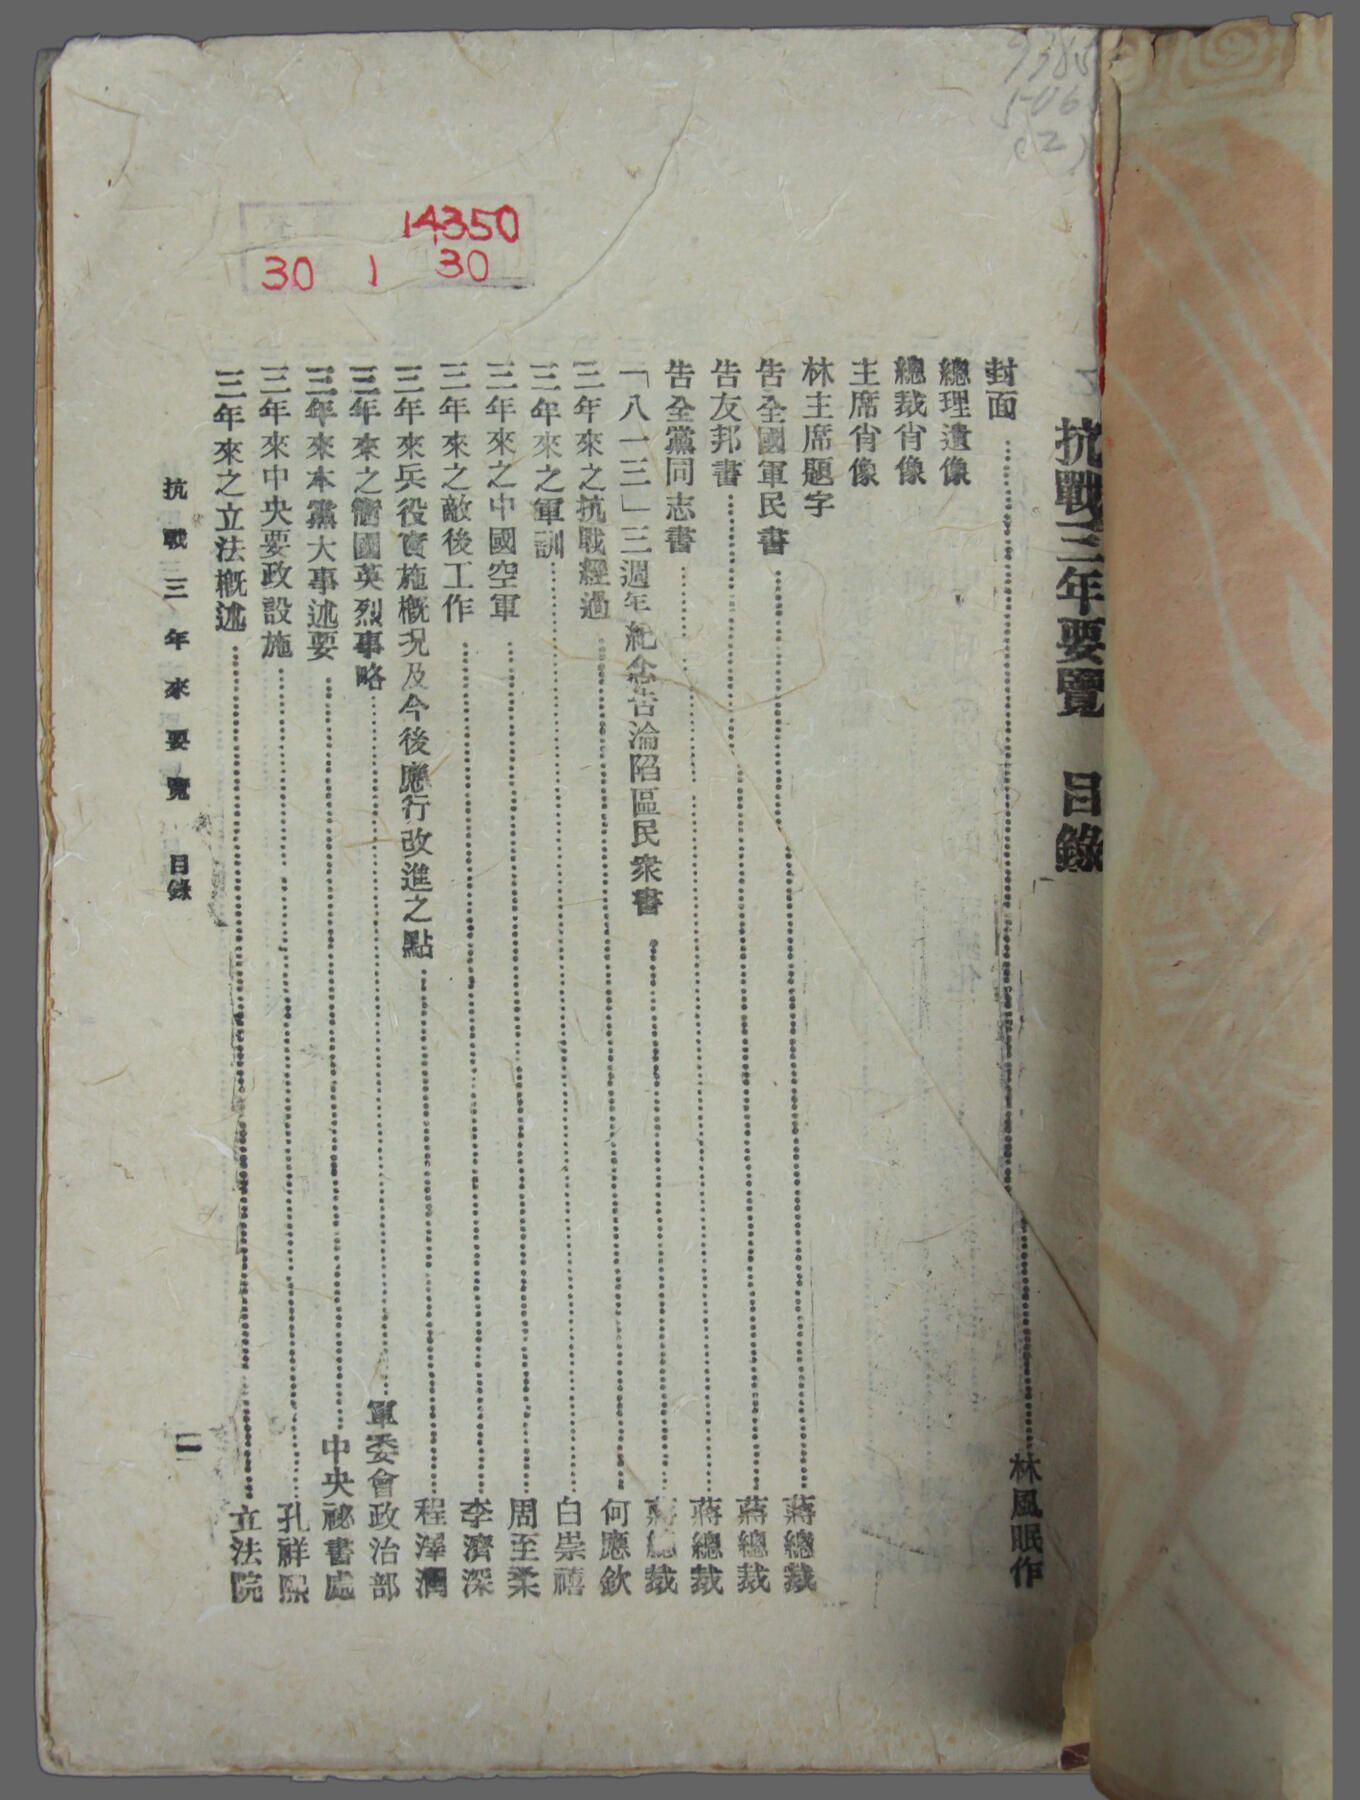 抗戰三年要覽　目錄
封面……林風眠作
總理遺像
總裁肖像
主席肖像
林主席題字
告全國軍民書……蔣總裁
告友邦書……蔣總裁
告全黨同志書……蔣總裁
「八一三」三週年紀念告淪陷區民衆書……蔣總裁
三年來之抗戰經過……何應欽
三年來之軍訓……白崇禧
三年來之中國空軍……周至柔
三年來之敵後工作……李濟深
三年來兵役實施概况及今後應行改進之點……程澤潤
三年來之衞國英烈事略……軍委會政治部
三年來本黨大事述要……中央祕書處
三年來中央要政設施……孔祥熙
三年來之立法概述……立法院
抗戰三年來要覽　目錄
14350
30　1　30